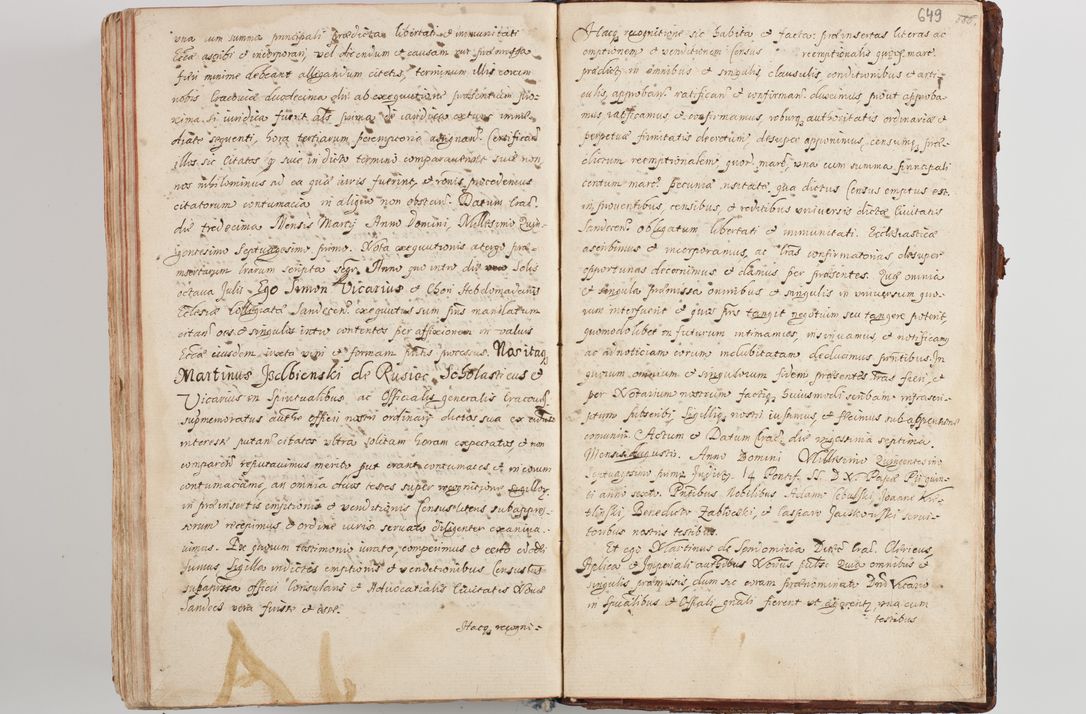 vna cum summa principali prædicta libertati et immunitati
Eccæ ascribi et incorporari, vel dicendum et causam cur præmissa
fieri minime debeant allegandum citetis, terminum illis coram
nobis Cracoviæ duodecima die ab exequutione præsentium pro-
xima si iuridica fuerit als prima die iuridica extunc imme-
diate sequenti, hora tertiarum peremptorie assignan. Certifican
illos sic citatos q suic in dicto termino comparauerint siue non
nos nihilominus ad ea quæ iuris fuerint, et rônis procedemus
citatorum contumacia in aliquo non obstan. Datum Crac.
die tredecima Mensis Martij Anno Domini, Millesimo Quin-
gentesimo Septuagesimo primo. Nota exequutionis a tergo præ-
insertarum lrarum scripta seqr. Anno quo intro die Solis
octaua Julij Ego Simon Vicarius et Chori Hebdomadarius
Ecclesiæ Collegiatæ Sandecen. exequutus sum pñs mandatum
citan. oēs et singulos intro contentos per affixionem in valuis
Eccæ eiusdem iuxta vim et formam pñtis processus. Nos itaq
Martinus Izdbienski de Rusiec Scholasticus et
Vicarius in Spiritualibus, ac Officialis generalis Cracouien
supmemoratus autho officij nostri ordinarij dictos sua ex
interesse putan. citatos vltra solitam horam expectatos, et non
comparen reputauimus merito put erant contumaces, et in eorum
contumaciam, an omnia duos testes super recognitione sigilloru
in præinsertis emptionis et venditionis Census literis subappres-
sorum recepimus et ordine iuris seruato diligenter examina-
uimus. Ex quorum testimonio iurato, comperimus et
Sigilla in dictis emptionis et venditionibus Census
subappressa officij Consularis et Aduocatialis Ciuitatis Nouæ
Sandecz vera fuisse et esse.
Hacq. recogni-
649
Hacq recognitione sic habita et facta: præinsertas literas ac
emptionem et venditionem Census reemptionalis quor marc.
prædict. in omnibus et singulis clausulis, conditionibus et arti-
culis, approban. ratifican et confirman. duximus prout approba-
mus, ratificamus et confirmamus, roburq authoritatis ordinariæ et
perpetuæ firmitatis decretum, desuper apponimus, censumq. præ-
dictum reemptionalem quor marc, vna cum summa principali
centum marc. pecuniæ vsitatæ, qua dictus Census emptus est.
in prouentibus, censibus, et reditibus vniuersis dictæ Ciuitatis
Sandecen. obligatum libertati et immunitati. Ecclesiasticæ
ascribimus et incorporamus, ac lras confirmatorias desuper
opportunas decernimus et damus per præsentes. Quæ omnia
et singula præmissa omnibus et singulis in vniuersum quo-
rum interfuerit et quos pñs tangit negotium seu tangere poterit,
quomodolibet in futurum intimamus, insinuamus, et notificam
ac ad notitiam eorum indubitatam deducimus pñtibus. In
quorum omnium et singulorum fidem præsentes lras fieri, et
per Notarium nostrum factiq. huiusmodi scribam infrascri-
ptum subscribi, Sigilliq. nostri iussimus, et fecimus sub appensione
communiri. Actum et Datum Crac. die vigesima septima
Mensis Augusti. Anno Domini Millesimo Quingentesimo
Septuagesimo primo Indictio. 14 Pontif. SS. D. N. Papæ Pij quin-
ti anno sexto. Pñtibus Nobilibus Adamo Joanne
Benedicto Zablocki, et Casparo seruito-
ribus nostris testibus.
Et ego Martinus de Clericus,
Aplica et Imperiali authibus Norius publs: Quia omnibus et
singulis præmissis, dum sic coram prænominato Dño Vicario
in Spiritualibus et Offali gñali fierent vt agerent, vna cum
testibus